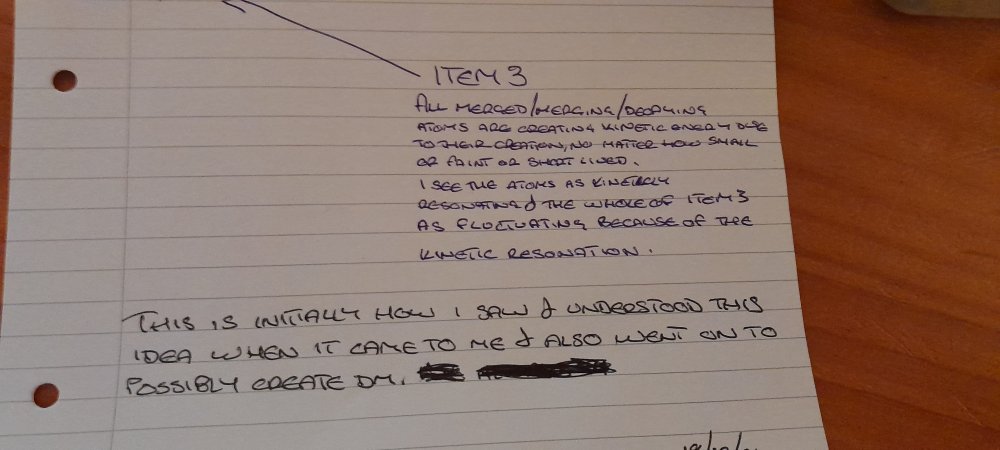 ITEM 3
ALL MERGED/MERGING/DECAYING
ATOMS ARE CREATING KINETIC ENERY DUE
TO THEIR CREATION, NO MATTER HOW SMALL
OR FAINT OR SHORT LIVED.
I SEE THE ATOMS AS KINETICLY
RESONATING & THE WHOLE OF ITEM 3
AS FLUCTUATING BECAUSE OF THE
KINETIC RESONATION.
THIS IS INITIALLY HOW I SAW & UNDERSTOOD THIS
IDEA WHEN IT CAME TO ME & ALSO WENT ON TO
POSSIBLY CREATE DM.